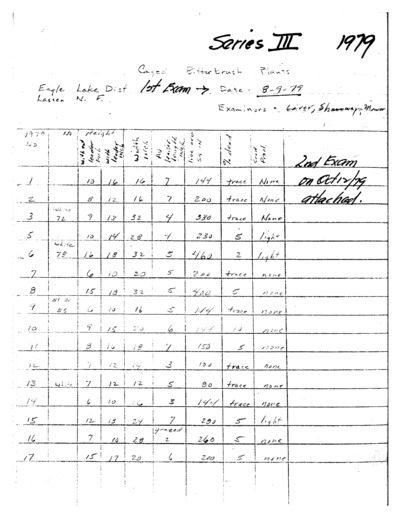 Series III 1979
Caged Bitterbrush Plants
Eagle Lake Dist 1st Exam → Date - 8-9-79
Lassen N. F.
Examiners -
1979 No Height
No.
without leader with leader Width Av leader length % dead
2nd Exam
on Oct 12/79
attached.
1 10 16 16 7 144 trace None
2 8 12 16 7 200 trace None
3 72 9 13 32 4 330 trace None
5 10 14 28 4 230 5 light
6 White 78 16 18 32 5 460 2 light
7 6 10 20 5 200 trace none
8 15 18 32 5 400 5 none
9 55 6 10 16 5 144 trace none
10 9 15 20 6 none
11 8 18 150 5 none
12 12 3 trace none
13 White 7 12 12 5 80 trace none
14 6 10 3 144 trace none
15 12 18 24 7 280 5 light
16 7 10 28 grazed 2 260 5 none
17 15 17 20 6 200 5 none